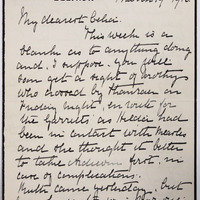 My dearest Celia.
This week is a
blank as to anything doing
and, I suppose, you will
soon get a sight of Dorothy
who crossed by
on Friday night, en route for
the Garretts, as Helen had
been in contact with measles
and she thought it better
to take first, in
case of complications.
Ruth came yesterday, but